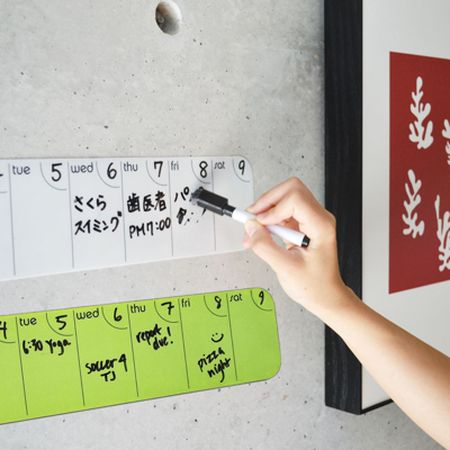 tue 5 wed 6 thu 7 fri 8 sat 9
さくら
スイミング
歯医者
PM7:00
パ
4 tue 5 wed 6 thu 7 fri 8 sat 9
6:30 Yoga
soccer 4
TJ
report
due!
pizza
night